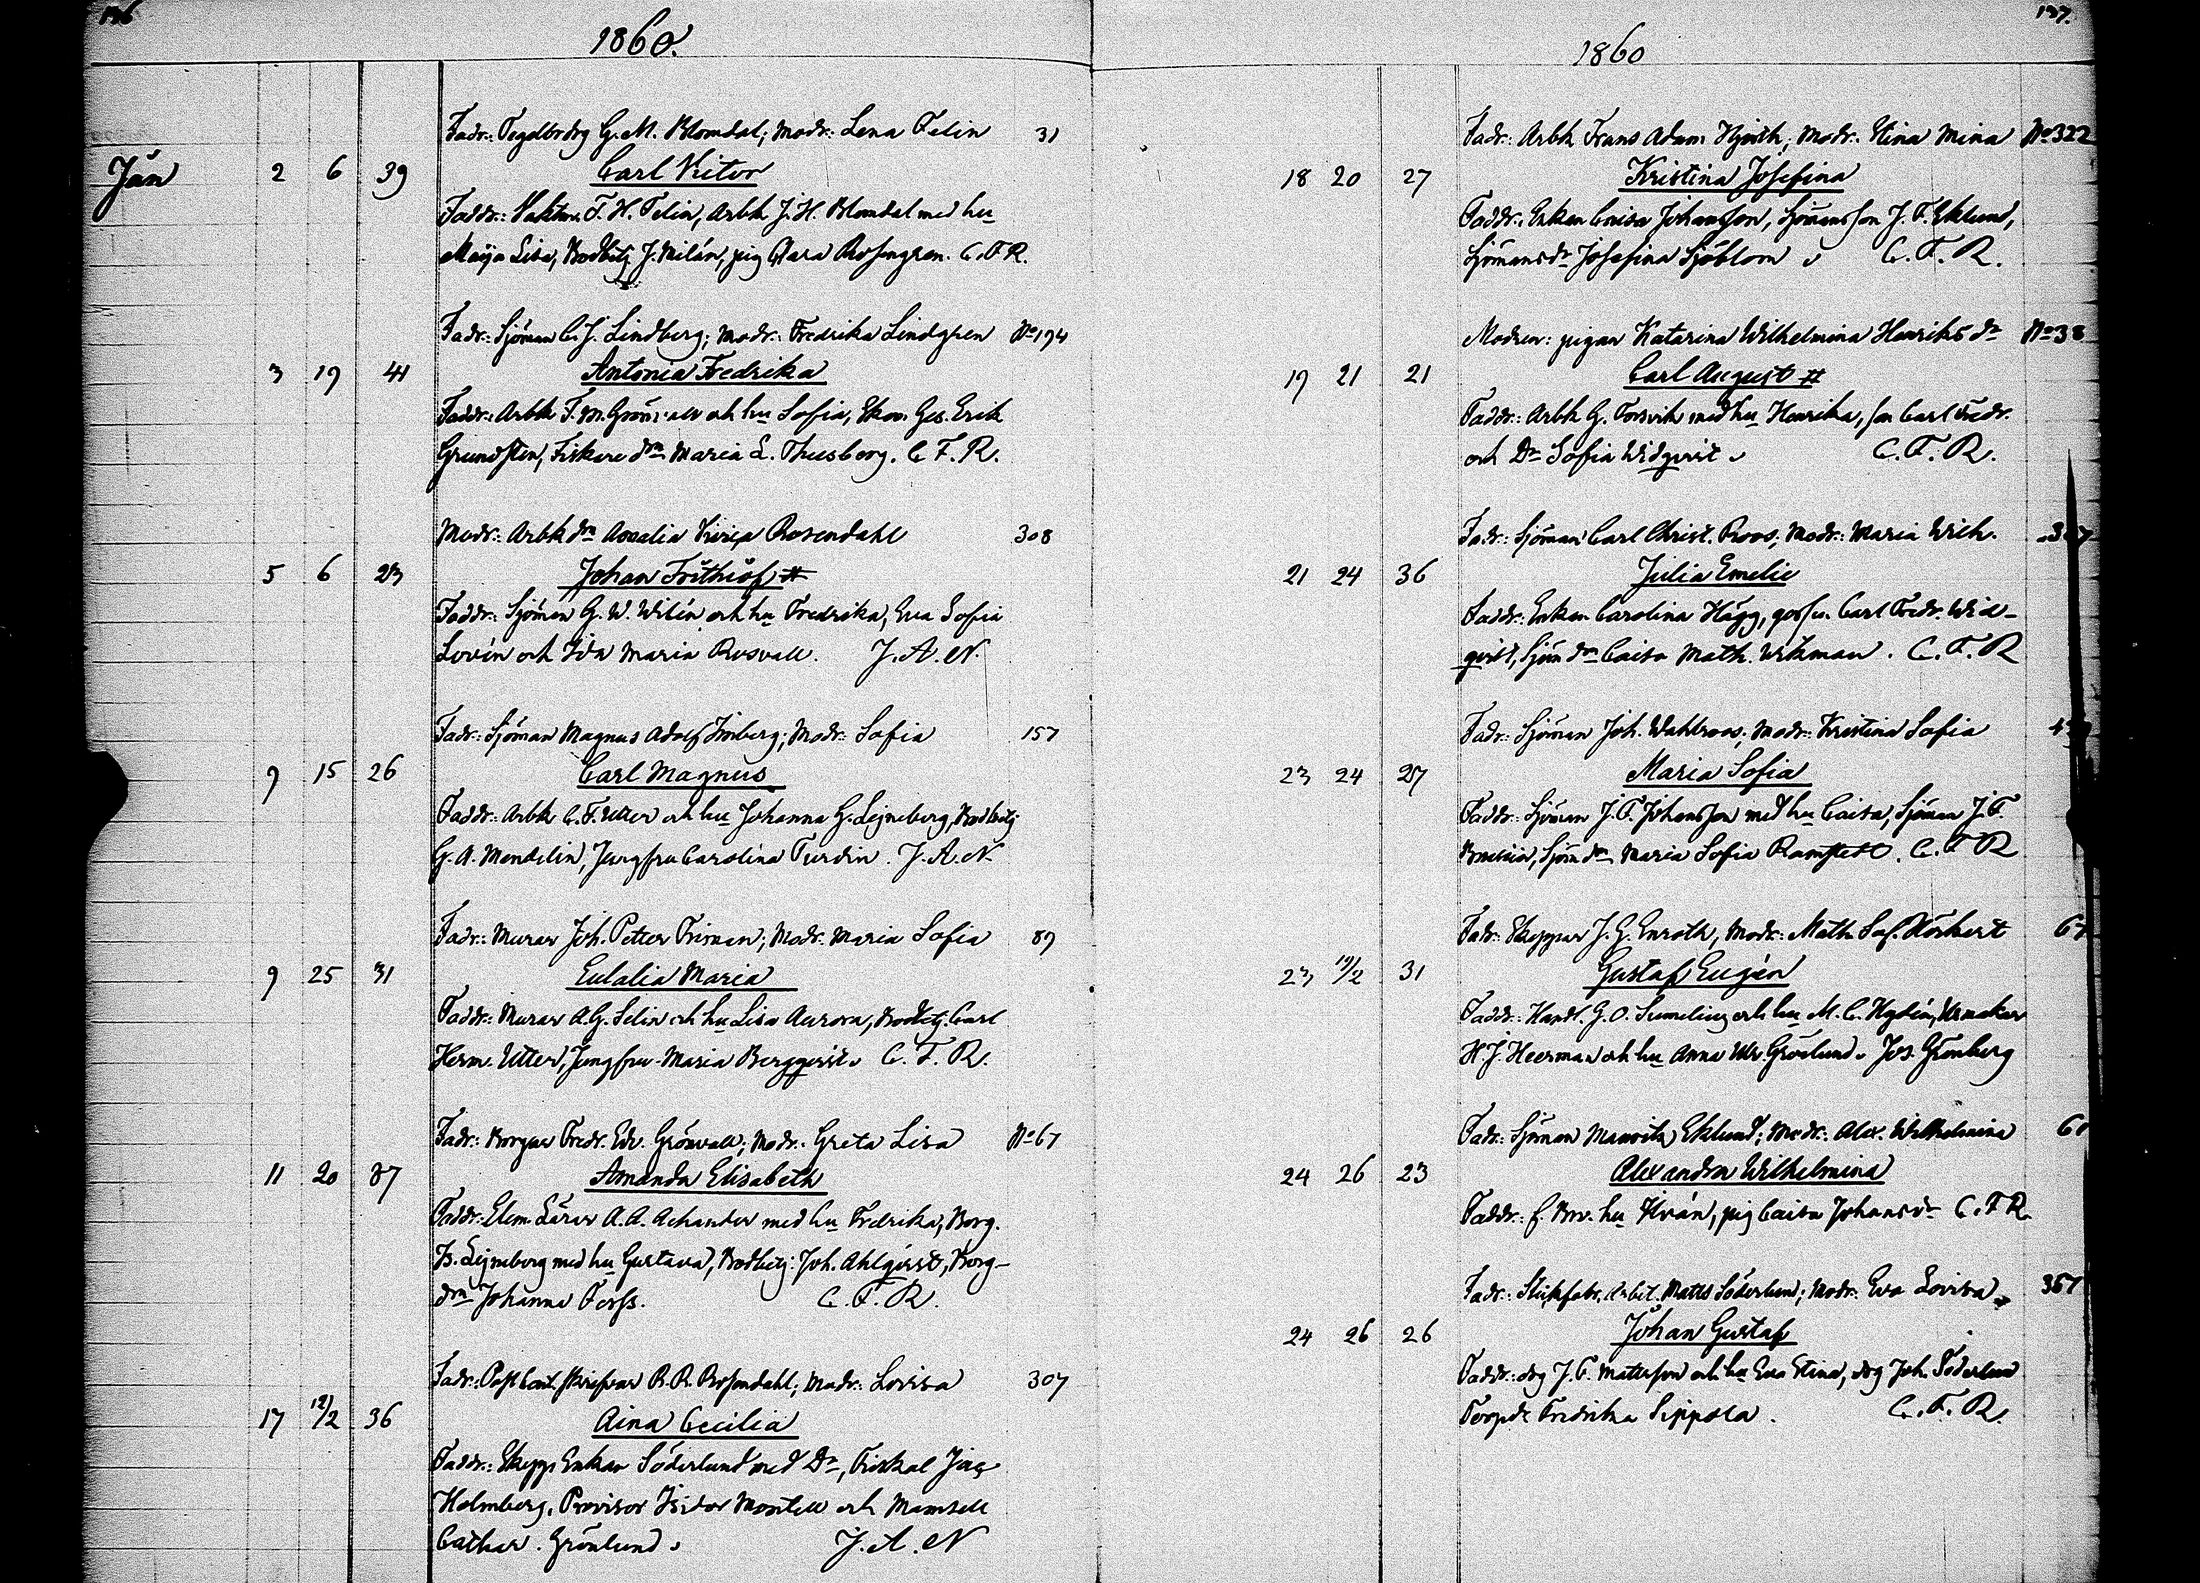 136
1860.
Fadr: Tegelbrdrg G. M. Blomdal; Modr: Lena Felin 31
Jan 2 6 39 Carl Victor
Faddr: Vaktm. F. H. Felin, Arbk J. H. Blomdal med hu
Maija Lisa, Bodbetj J. Milán, pig Clara Rosengren. C.F.R.
Fadr: Sjöman C. J. Lindberg; Modr: Fredrika Lindgren No 194
3 19 41 Antonia Fredrika
Faddr: Arbk F. M. och hu Sofia, Ges. Erik
Grundsten, Fiskare drn Maria L. Thusberg. C. F. R.
Modr: Arbk drn Amalia Rosendahl 308
5 6 23 Johan Frithiof #
Faddr: Sjöman G. W. Wilén och hu Fredrika, Eva Sofia
Lovén och Ida Maria Rosvall. J. A. N.
Fadr: Sjöman Magnus Adolf Imberg; Modr: Sofia 157
9 15 26 Carl Magnus
Faddr: Arbk C. F. Utter och hu Johanna G. Lejneberg, Bodbetj
G. A. Mendelin, Jungfru Carolina Turdin. J. A. N.
Fadr: Murar Joh. Petter Friman; Modr: Maria Sofia 89
9 25 31 Eulalia Maria
Faddr: Murar A. G. Selin och hu Lisa Aurora, Bodbetj. Carl
Herm. Utter, Jungfru Maria Bergqvist. C. F. R.
Fadr: Borgar Fredr. Edv. Grönvall; Modr: Greta Lisa No 67
11 20 37 Amanda Elisabeth
Faddr: Elem. Lärar A. A. Achander med hu Fredrika, Borg.
Is. Lejneberg med hu Gustava, Bodbetj: Joh. Ahlqvist, Borg-
drn Johanna Forss. C. F. R.
Fadr: Post Cont. skrifvar R. R. Rosendahl; Modr: Lovisa 307
17 12/2 36 Aina Cecilia
Faddr: Skepp. Enkan Söderlund med Dr, Fiskal
Holmberg, Provisor Isidor Montell och Mamsell
Cathar. Grönlund. J. A. N
137.
1860
Fadr: Arbk Frans Adam Hjorth; Modr: Stina Mina No 322
18 20 27 Kristina Josefina
Faddr: Enkan Caisa Johansson, Sjömansson J. F. Eklund,
Sjömansdr Josefina Sjöblom. C. F. R.
Modren: pigan Katarina Wilhelmina Henriksdr No 38
19 21 21 Carl August #
Faddr: Arbk G. Forsvik med hu Henrika, son Carl Fredr.
och Dr Sofia Widqvist. C. F. R.
Fadr: Sjöman Carl Christ. Roos; Modr: Maria Wilh.
21 24 36 Julia Emelie
Faddr: Enkan Carolina Hägg, gossen Carl Fredr. Wid-
qvist, Sjöm drn Caisa Math. Wikman. C. F. R
Fadr: Sjöman Joh. Wahlroos; Modr: Kristina Sofia
23 24 27 Maria Sofia
Faddr: Sjöman J. F. Johansson med hu Caisa, Sjöman J. F.
Sjöm drn Maria Sofia Ramstedt. C. F. R
Fadr: Skeppar J. G. Enroth, Modr: Math. Sof. Körkert
23 19/2 31 Gustaf Eugén
Faddr: Handl. G. O. Sumelius och hu M. C. Hydén, Urmakar
H. J. Heerman och hu Anna Ulr. Grönlund. Jos. Grönberg
Fadr: Sjöman Mauritz Eklund; Modr: Alex. Wilhelmina
24 26 23 Alexandra Wilhelmina
Faddr: f. hu pig Caisa Johansdr C. F. R
Fadr: Arbet. Matts Söderlund; Modr: Eva Lovisa 367
24 26 26 Johan Gustaf
Faddr: drg J. F. Mattsson och hu Eva Stina, drg Joh. Söderlund
Torpdr Fredrika Seppola. C. F. R.